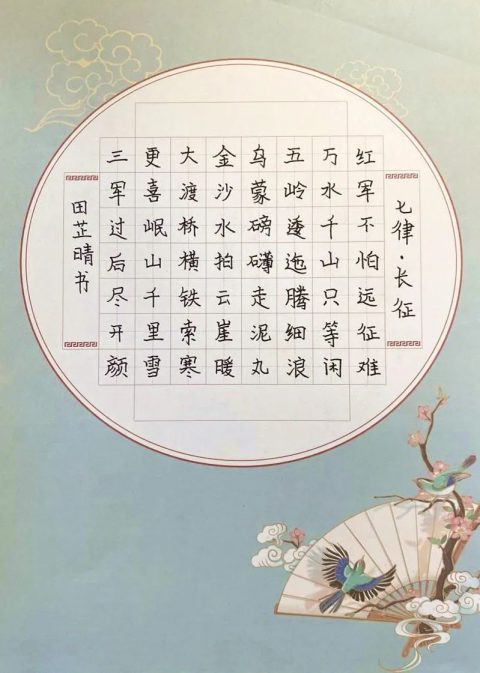 七律·长征
红军不怕远征难
万水千山只等闲
五岭逶迤腾细浪
乌蒙磅礴走泥丸
金沙水拍云崖暖
大渡桥横铁索寒
更喜岷山千里雪
三军过后尽开颜
田芷晴书